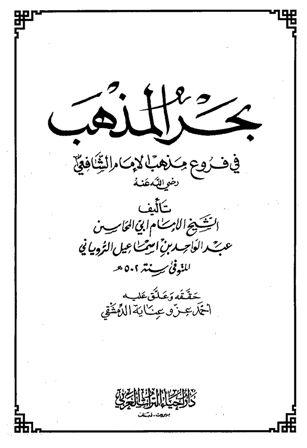 بحر المذهب
في فروع مذهب الإمام الشافعي
رضي الله عنه
تأليف
الشيخ الإمام أبي المحاسن
عبد الواحد بن إسماعيل الروياني
المتوفى سنة ٥٠٢ هـ
حققه وعلق عليه
أحمد عزو عناية الدمشقي
دار إحياء التراث العربي
بيروت - لبنان